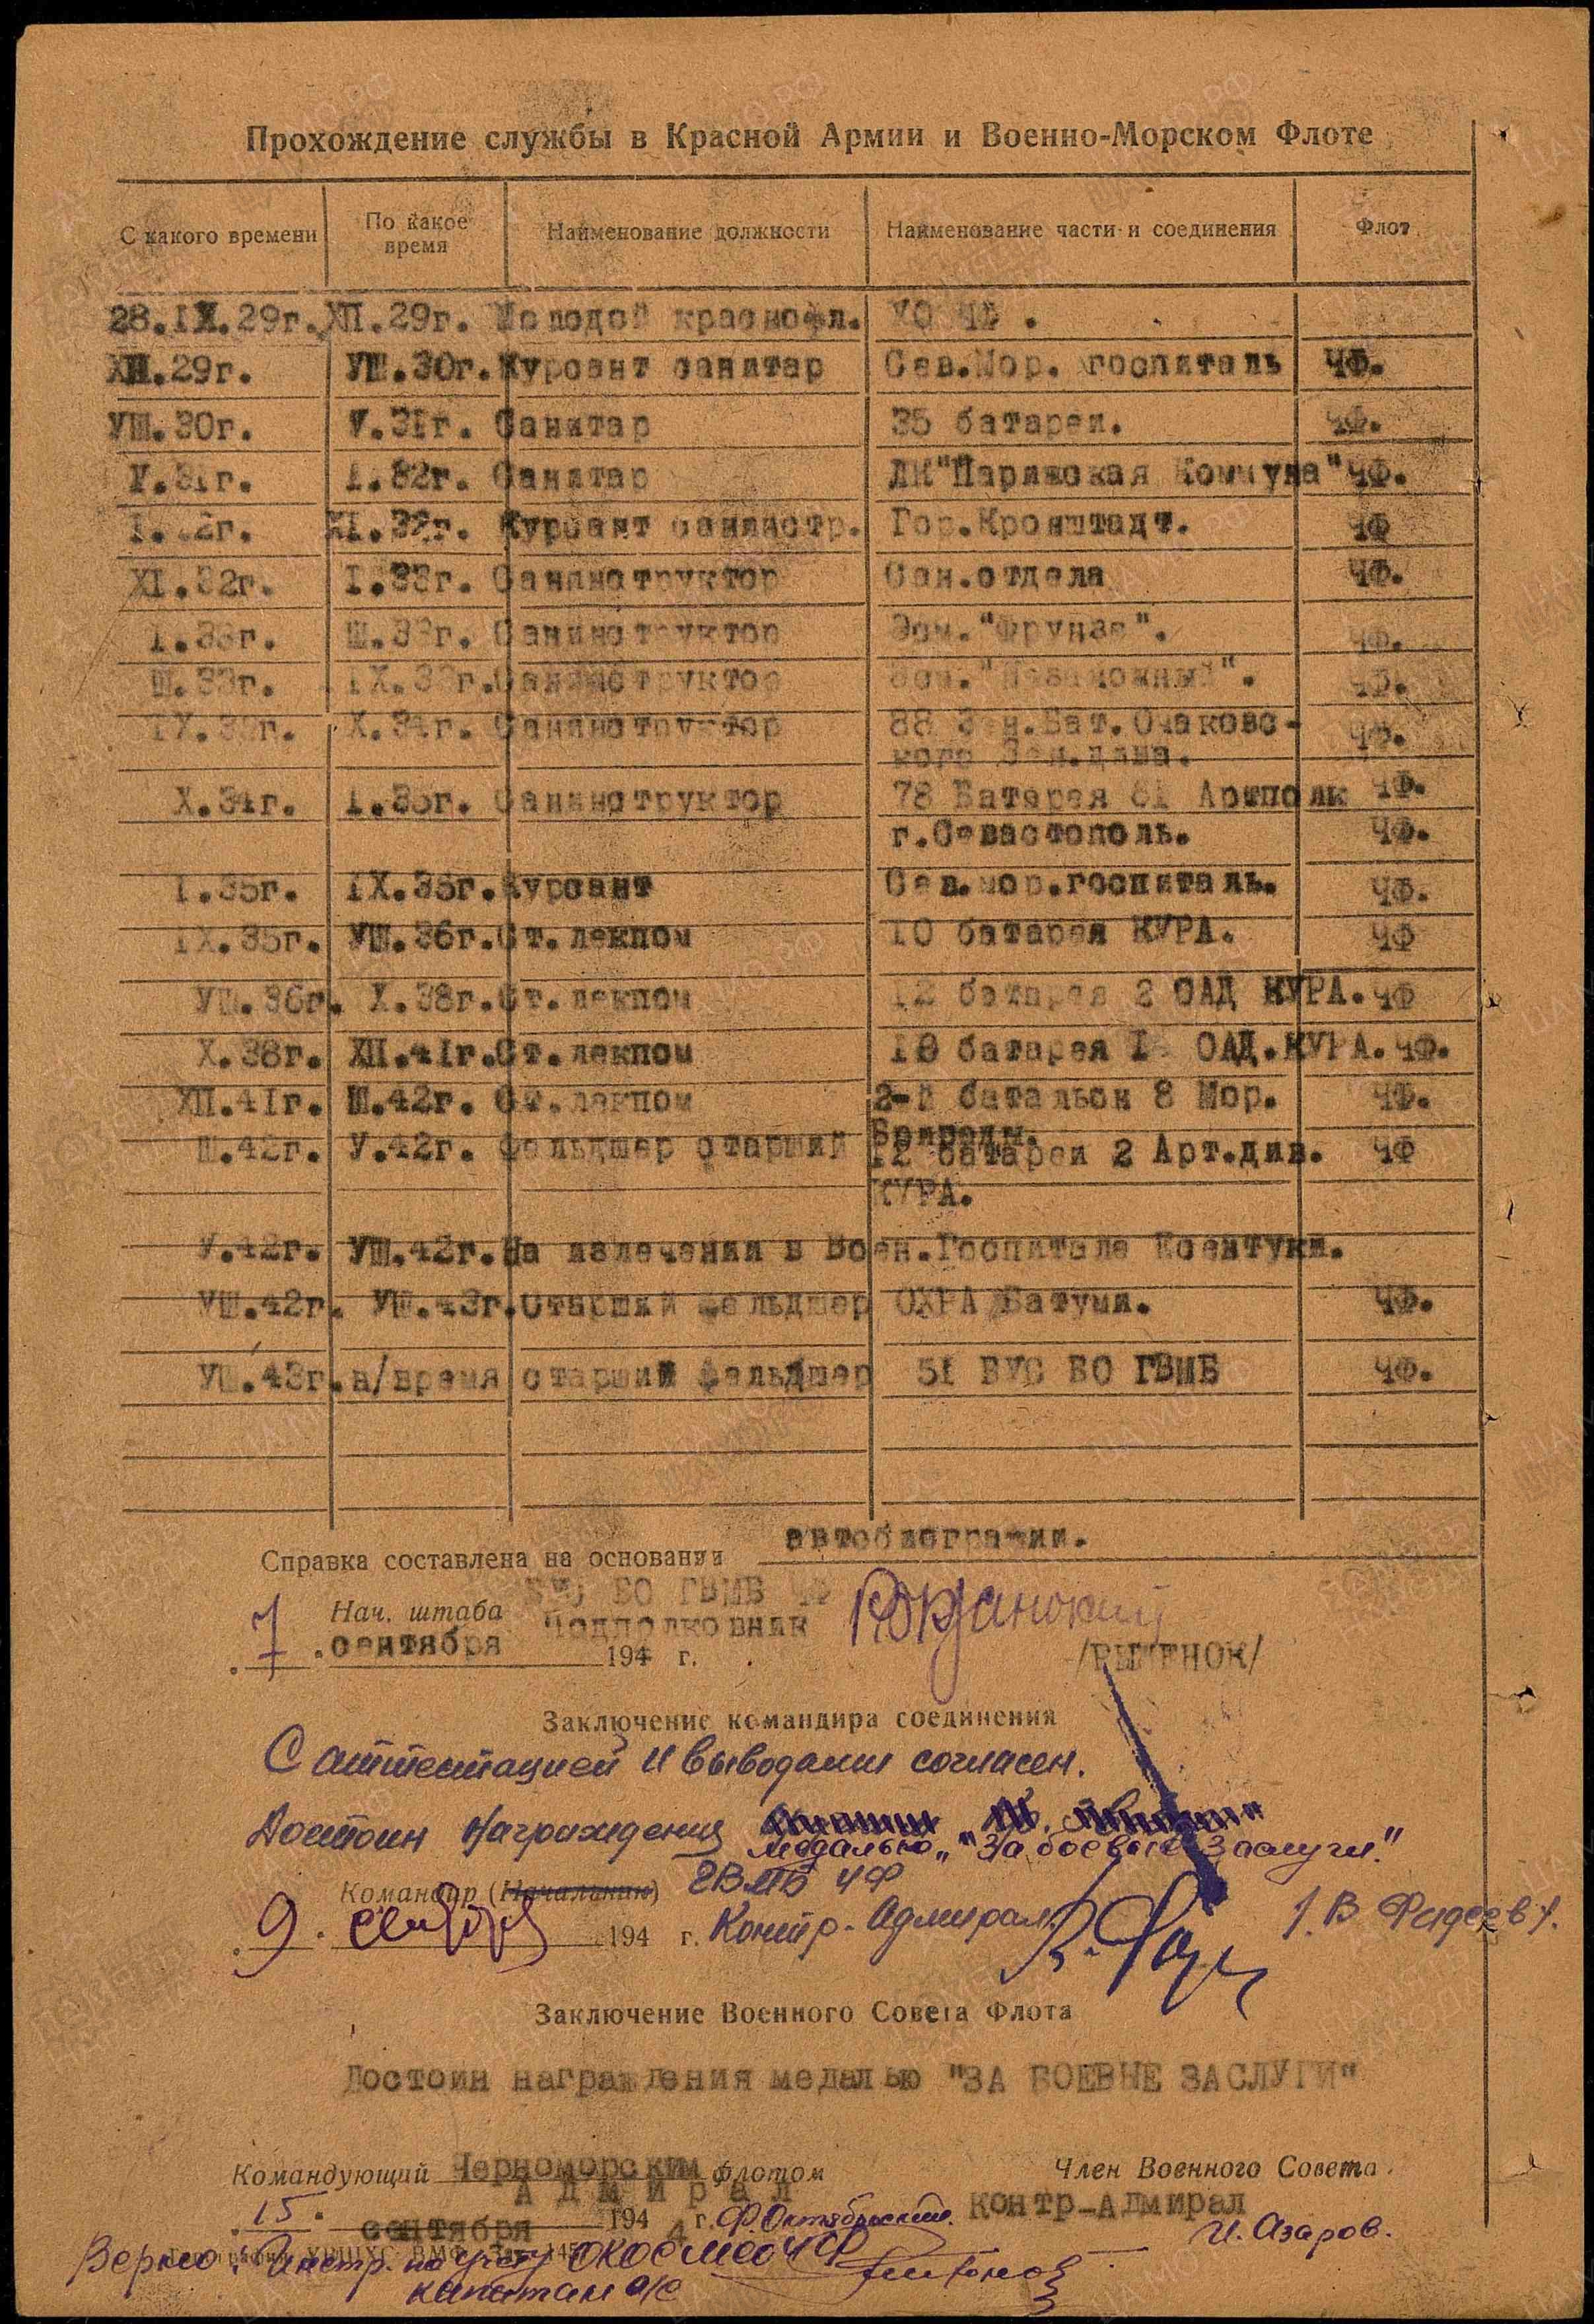 Прохождение службы в Красной Армии и Военно-Морском Флоте
С какого времени По какое время Наименование должности Наименование части и соединения Флот
28.IX.29г. XII.29г. Молодой краснофл. УО ЧФ.
XII.29г. УШ.30г. Курсант санитар Сев.Мор. госпиталь ЧФ.
УШ.30г. У.31г. Санитар 35 батареи. ЧФ.
У.31г. I.32г. Санитар ЛК "Парижская Коммуна" ЧФ.
I.32г. XI.32г. Курсант санинстр. Гор.Кронштадт. ЧФ
XI.32г. I.33г. Санинструктор Сан.отдела ЧФ.
I.33г. Ш.33г. Санинструктор Эсм."Фрунзе". ЧФ.
Ш.33г. IX.33г. Санинструктор Эсм."Незаможный". ЧФ.
IX.33г. X.34г. Санинструктор 88 Зен.Бат.Очаковс-
кого Зен.дива. ЧФ.
X.34г. I.35г. Санинструктор 78 Батарея 61 Артполк ЧФ.
г.Севастополь. ЧФ.
I.35г. IX.35г. Курсант Сев.мор.госпиталь. ЧФ.
IX.35г. УШ.36г. Ст.лекпом 10 батарея КУРА. ЧФ
УШ.36г. X.38г. Ст.лекпом 12 батарея 2 ОАД КУРА. ЧФ
X.38г. XII.41г. Ст.лекпом батарея I ОАД.КУРА. ЧФ.
XII.41г. Ш.42г. Ст.лекпом 2-й батальон 8 Мор.
Бригады. ЧФ.
Ш.42г. У.42г. Фельдшер старший 12 батареи 2 Арт.див. ЧФ
КУРА.
У.42г. УШ.42г. На излечении в Воен.Госпитале Есентуки.
УШ.42г. УШ.43г. Старший фельдшер ОХРА Батуми. ЧФ.
УШ.43г. н/время старший фельдшер 51 ВУС БО ГВМБ ЧФ.
Справка составлена на основании автобиографии.
Нач. штаба БО ГВМБ ЧФ
Подполковник
7 . сентября 194 г.
/РЫЖЕНОК/
Заключение командира соединения
С аттестацией и выводами согласен.
Достоин награждения
медалью „За боевые заслуги."
Командир (Начальник) ГВМБ ЧФ
9. сентября 194 г. Контр-Адмирал /В Фадеев/.
Заключение Военного Совета Флота
Достоин награждения медалью "ЗА БОЕВЫЕ ЗАСЛУГИ"
Командующий Черноморским флотом Член Военного Совета
Адмирал Контр-Адмирал
15. сентября 194 4 г. Ф.Октябрьский. И. Азаров.
Верно: Инстр. по учету ОКОС МСО ЧФ
капитан а/с Антонов